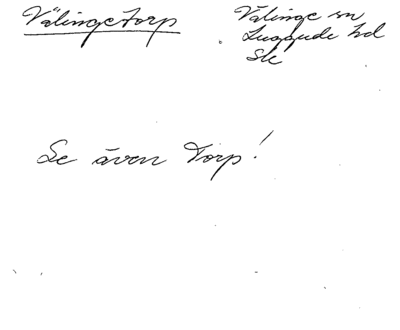 Välingetorp
Välinge sn
Luggude hd
Sk
Se även Torp!